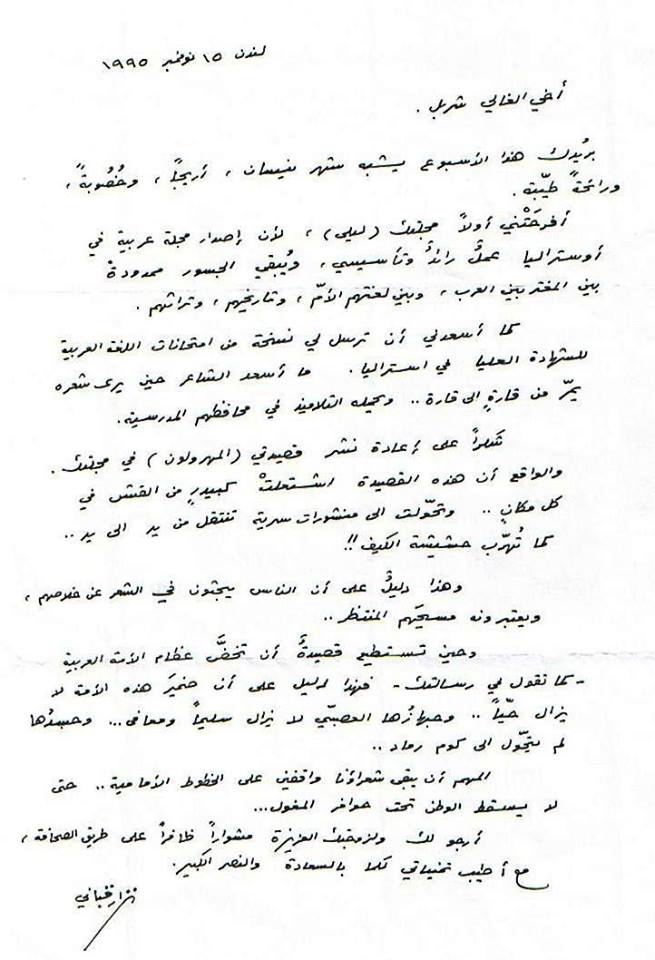 لندن ١٥ نوفمبر ١٩٩٥
أخي الغالي شربل .
بريدك هذا الأسبوع يشبه شهر نيسان ، أريجاً ، وخُصُوبةً ،
ورائحةً طيّبة .
أفرحَتْني أولاً مجلتك (ليلى) ، لأن إصدار مجلة عربية في
أوستراليا عملٌ رائدٌ وتأسيسي ، ويُبقي الجسور ممدودةً
بين المغتربين العرب ، وبين لغتهم الأمّ ، وتاريخهم ، وتراثهم .
كما أسعدني أن ترسل لي نسخة من امتحانات اللغة العربية
للشهادة العليا في استراليا . ما أسعد الشاعر حين يرى شعره
يمرّ من قارةٍ الى قارة .. ويحمله التلاميذ في محافظهم المدرسية .
شكراً على إعادة نشر قصيدتي (المهرولون) في مجلتك .
والواقع أن هذه القصيدة اشتعلتْ كبيدرٍ من القش في
كل مكانٍ .. وتحّولت الى منشورات سرية تنتقل من يد الى يد ..
كما تُهرّب حشيشة الكيف !!
وهذا دليلٌ على أن الناس يبحثون في الشعر عن خلاصهم ،
ويعتبرونه مسيحَهم المنتظر ..
وحين تستطيع قصيدةٌ أن تخضَّ عظام الأمة العربية
- كما تقول في رسالتك - فهذا لدليل على أن ضميرَ هذه الأمة لا
يزال حّياً .. وجهازُها العصبّي لا يزال سليماً ومعافى ... وجسدُها
لم يتحّول الى كوم رماد ..
المهم أن يبقى شعراؤنا واقفين على الخطوط الأمامية .. حتى
لا يسقط الوطن تحت حوافر المغول ...
أرجو لك ولزوجتك العزيزة مشواراً ظافراً على طريق الصحافة ،
مع أطيب تمنياتي لكما بالسعادة والنصر الكبير .
نزار قباني